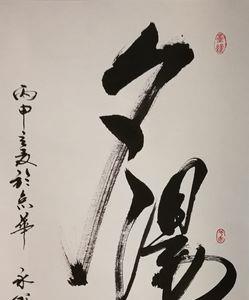 夕陽
丙申夏於京華 永